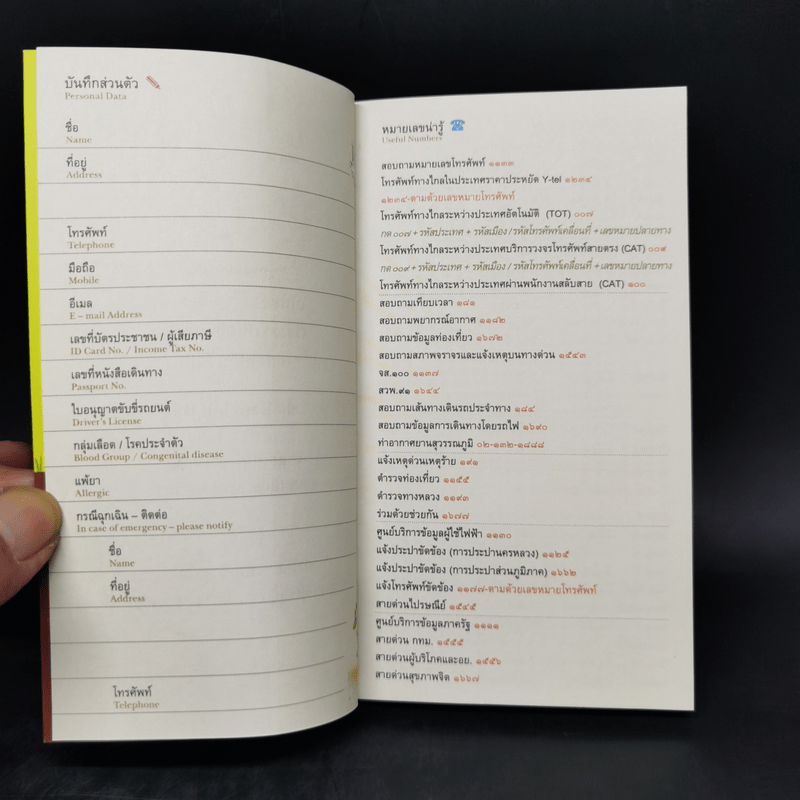 บันทึกส่วนตัว
Personal Data
ชื่อ
Name
ที่อยู่
Address
โทรศัพท์
Telephone
มือถือ
Mobile
อีเมล
E – mail Address
เลขที่บัตรประชาชน / ผู้เสียภาษี
ID Card No. / Income Tax No.
เลขที่หนังสือเดินทาง
Passport No.
ใบอนุญาตขับขี่รถยนต์
Driver's License
กลุ่มเลือด / โรคประจำตัว
Blood Group / Congenital disease
แพ้ยา
Allergic
กรณีฉุกเฉิน – ติดต่อ
In case of emergency – please notify
ชื่อ
Name
ที่อยู่
Address
โทรศัพท์
Telephone
หมายเลขน่ารู้
Useful Numbers
สอบถามหมายเลขโทรศัพท์ ๑๑๓๓
โทรศัพท์ทางไกลในประเทศราคาประหยัด Y-tel ๑๒๓๔
๑๒๓๔-ตามด้วยเลขหมายโทรศัพท์
โทรศัพท์ทางไกลระหว่างประเทศอัตโนมัติ (TOT) ๐๐๗
กด ๐๐๗ + รหัสประเทศ + รหัสเมือง / รหัสโทรศัพท์เคลื่อนที่ + เลขหมายปลายทาง
โทรศัพท์ทางไกลระหว่างประเทศบริการวงจรโทรศัพท์สายตรง (CAT) ๐๐๙
กด ๐๐๙ + รหัสประเทศ + รหัสเมือง / รหัสโทรศัพท์เคลื่อนที่ + เลขหมายปลายทาง
โทรศัพท์ทางไกลระหว่างประเทศผ่านพนักงานสลับสาย (CAT) ๑๐๐
สอบถามเทียบเวลา ๑๘๑
สอบถามพยากรณ์อากาศ ๑๑๘๒
สอบถามข้อมูลท่องเที่ยว ๑๖๗๒
สอบถามสภาพจราจรและแจ้งเหตุบนทางด่วน ๑๕๔๓
จส.๑๐๐ ๑๑๓๗
สวพ.๙๑ ๑๖๔๔
สอบถามเส้นทางเดินรถประจำทาง ๑๘๔
สอบถามข้อมูลการเดินทางโดยรถไฟ ๑๖๙๐
ท่าอากาศยานสุวรรณภูมิ ๐๒-๑๓๒-๑๘๘๘
แจ้งเหตุด่วนเหตุร้าย ๑๙๑
ตำรวจท่องเที่ยว ๑๑๕๕
ตำรวจทางหลวง ๑๑๙๓
ร่วมด้วยช่วยกัน ๑๖๗๗
ศูนย์บริการข้อมูลผู้ใช้ไฟฟ้า ๑๑๓๐
แจ้งประปาขัดข้อง (การประปานครหลวง) ๑๑๒๕
แจ้งประปาขัดข้อง (การประปาส่วนภูมิภาค) ๑๖๖๒
แจ้งโทรศัพท์ขัดข้อง ๑๑๗๗-ตามด้วยเลขหมายโทรศัพท์
สายด่วนไปรษณีย์ ๑๕๔๕
ศูนย์บริการข้อมูลภาครัฐ ๑๑๑๑
สายด่วน กทม. ๑๕๕๕
สายด่วนผู้บริโภคและอย. ๑๕๕๖
สายด่วนสุขภาพจิต ๑๖๖๗